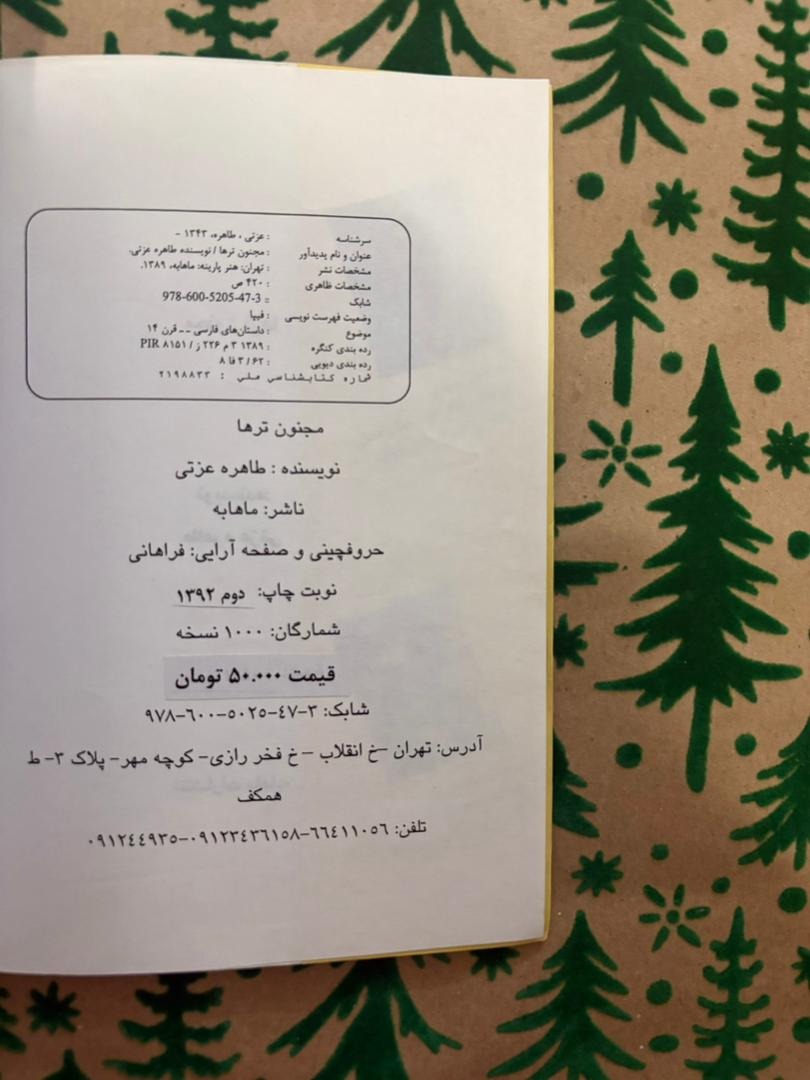 سرشناسه : عزتی ، طاهره، ۱۳۴۳ -
عنوان و نام پدیدآور : مجنون ترها / نویسنده طاهره عزتی.
مشخصات نشر : تهران: هنر پارینه: ماهابه، ۱۳۸۹.
مشخصات ظاهری : ۴۲۰ ص
شابک : 978-600-5205-47-3
وضعیت فهرست نویسی : فیپا
موضوع : داستان‌های فارسی -- قرن ۱۴
رده بندی کنگره : ۱۳۸۹ ۳ م ۲۲۶ ز / PIR ۸۱۵۱
رده بندی دیویی : ۶۲ / ۳ فا ۸
شماره کتابشناسی ملی : ۲۱۹۸۸۳۳
مجنون ترها
نویسنده : طاهره عزتی
ناشر: ماهابه
حروفچینی و صفحه آرایی: فراهانی
نوبت چاپ: دوم ۱۳۹۲
شمارگان: ۱۰۰۰ نسخه
قیمت ۵۰.۰۰۰ تومان
شابک: ۳-٤۷-۵۰۲۵-٦۰۰-۹۷۸
آدرس: تهران –خ انقلاب – خ فخر رازی– کوچه مهر– پلاک ۳- ط
همکف
تلفن: ٦٦٤۱۱۰۵٦-۰۹۱۲۳٤۳٦۱۵۸-۰۹۱۲٤٤۹۳۵